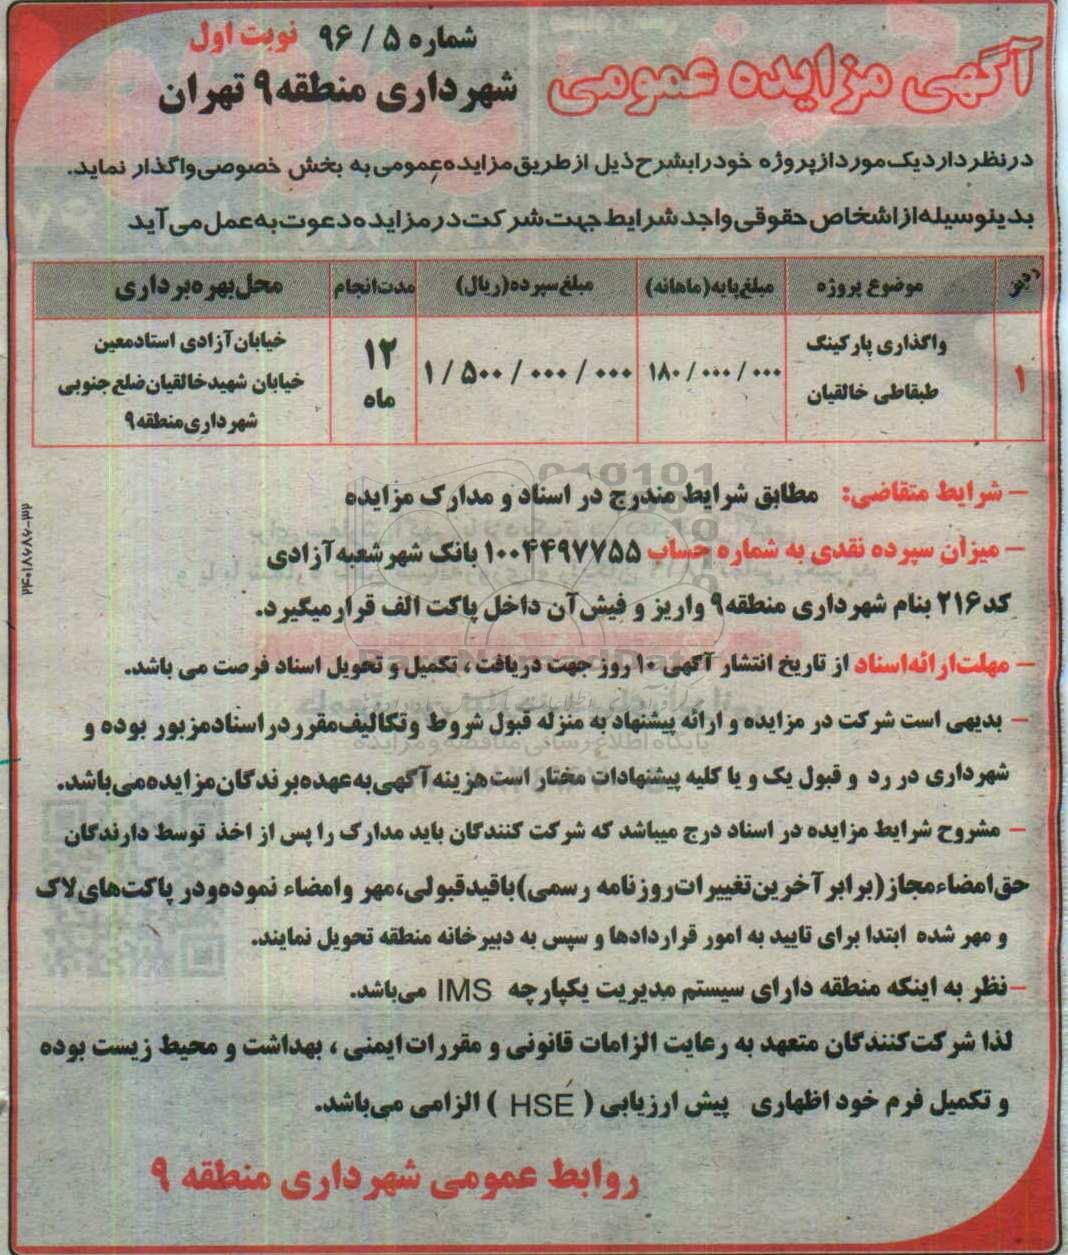 آگهی مزایده عمومی
شماره ۵ / ۹۶ نوبت اول
شهرداری منطقه ۹ تهران
درنظر دارد یک مورد از پروژه خود را بشرح ذیل از طریق مزایده عمومی به بخش خصوصی واگذار نماید.
بدینوسیله از اشخاص حقوقی واجد شرایط جهت شرکت در مزایده دعوت به عمل می آید
ردیف موضوع پروژه مبلغ پایه (ماهانه) مبلغ سپرده (ریال) مدت انجام محل بهره برداری
۱ واگذاری پارکینگ طبقاطی خالقیان ۱۸۰/۰۰۰/۰۰۰ ۱/۵۰۰/۰۰۰/۰۰۰ ۱۲ ماه خیابان آزادی استاد معین خیابان شهید خالقیان ضلع جنوبی شهرداری منطقه ۹
– شرایط متقاضی: مطابق شرایط مندرج در اسناد و مدارک مزایده
– میزان سپرده نقدی به شماره حساب ۱۰۰۴۴۹۷۷۵۵ بانک شهر شعبه آزادی
کد ۲۱۶ بنام شهرداری منطقه ۹ واریز و فیش آن داخل پاکت الف قرار میگیرد.
– مهلت ارائه اسناد از تاریخ انتشار آگهی ۱۰ روز جهت دریافت ، تکمیل و تحویل اسناد فرصت می باشد.
– بدیهی است شرکت در مزایده و ارائه پیشنهاد به منزله قبول شروط و تکالیف مقرر در اسناد مزبور بوده و
شهرداری در رد و قبول یک و یا کلیه پیشنهادات مختار است هزینه آگهی به عهده برندگان مزایده می باشد.
– مشروح شرایط مزایده در اسناد درج میباشد که شرکت کنندگان باید مدارک را پس از اخذ توسط دارندگان
حق امضاء مجاز (برابر آخرین تغییرات روزنامه رسمی) با قید قبولی، مهر و امضاء نموده و در پاکت های لاک
و مهر شده ابتدا برای تایید به امور قراردادها و سپس به دبیرخانه منطقه تحویل نمایند.
– نظر به اینکه منطقه دارای سیستم مدیریت یکپارچه IMS می باشد.
لذا شرکت کنندگان متعهد به رعایت الزامات قانونی و مقررات ایمنی ، بهداشت و محیط زیست بوده
و تکمیل فرم خود اظهاری پیش ارزیابی ( HSE ) الزامی می باشد.
روابط عمومی شهرداری منطقه ۹
ParsNamadData
پایگاه اطلاع رسانی مناقصه و مزایده